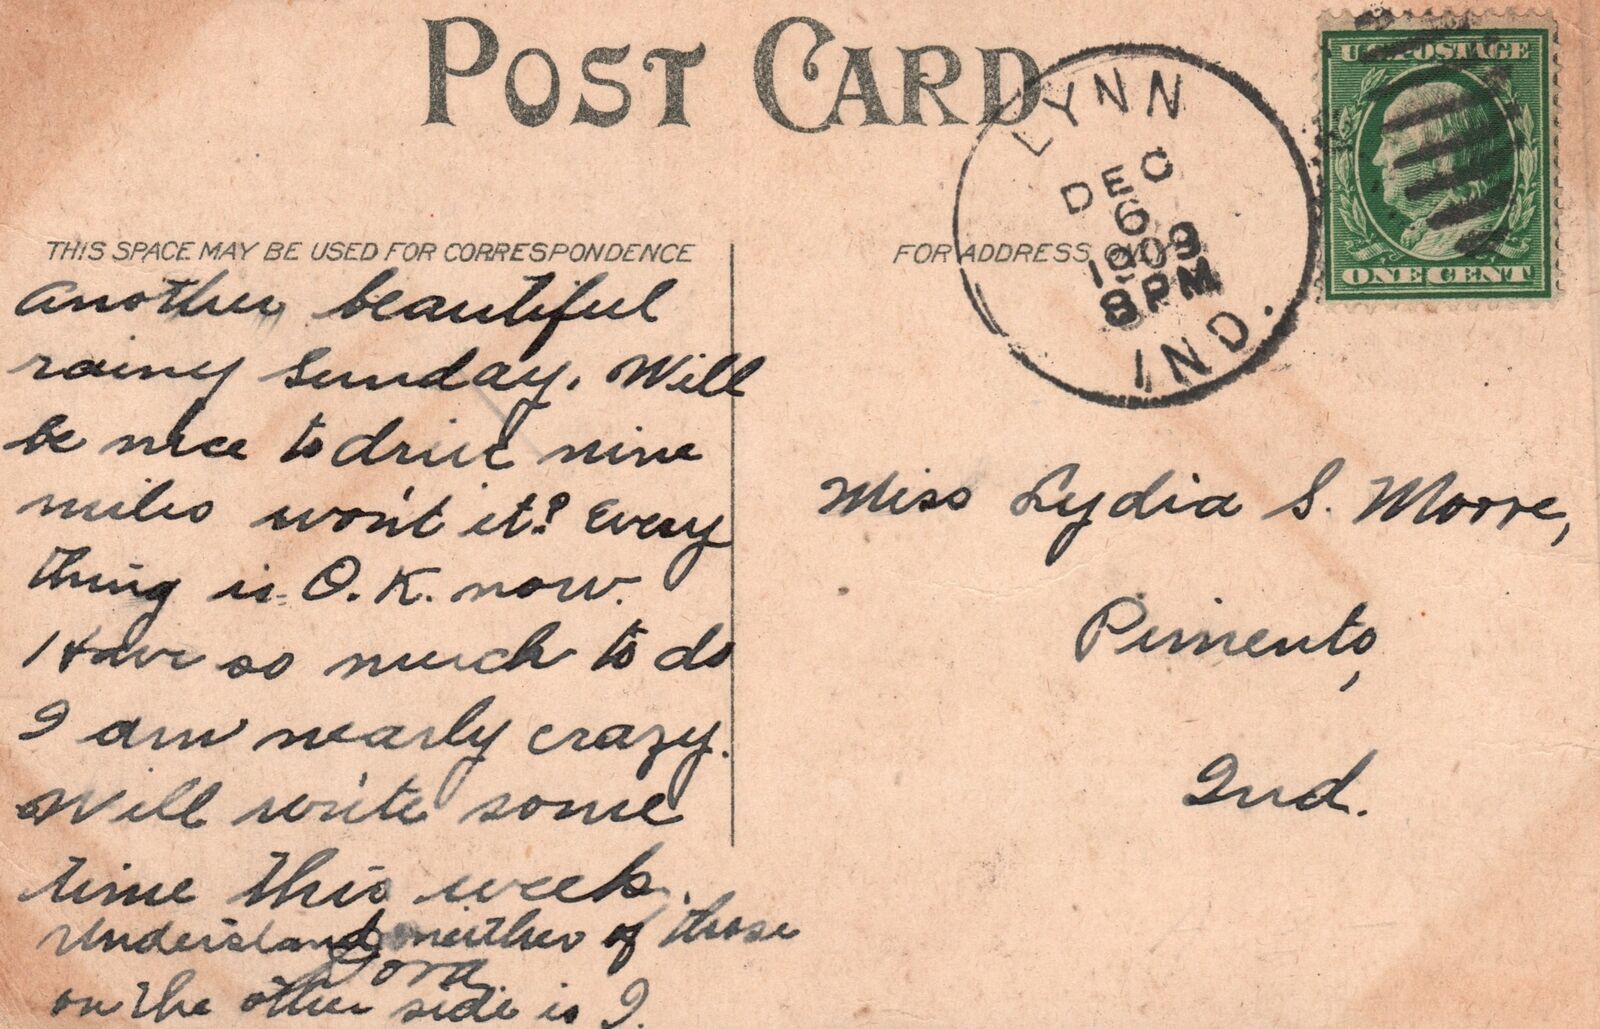 POST CARD
LYNN
DEC
6
1909
8 PM
IND.
U.S. POSTAGE
ONE CENT
THIS SPACE MAY BE USED FOR CORRESPONDENCE
FOR ADDRESS ONLY
Another beautiful
rainy Sunday. Will
be nice to drive nine
miles won't it? Every
thing is O.K. now.
Have so much to do
I am nearly crazy.
Will write some
time this week.
Dora
Understand neither of those
on the other side is I.
Miss Lydia S. Moore,
Pimento,
Ind.